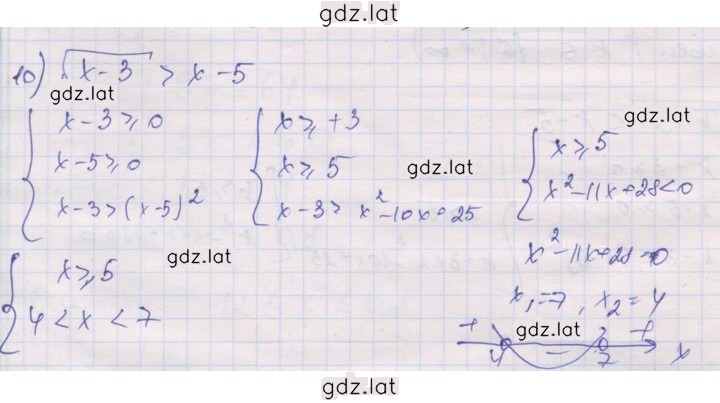 gdz.lat
10) √(x-3) > x-5
gdz.lat
{ x-3 ⩾ 0
x-5 ⩾ 0
x-3 > (x-5)²
{ x ⩾ +3
x ⩾ 5
x-3 > x²-10x+25
gdz.lat
gdz.lat
{ x ⩾ 5
x²-11x+28<0
x²-11x+28=0
x₁=7, x₂=4
gdz.lat
+ - +
4 7 x
gdz.lat
{ x ⩾ 5
4 < x < 7
gdz.lat